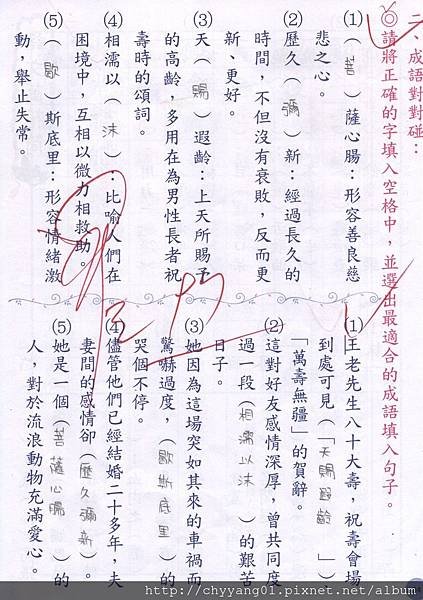 二、成語對對碰：
◎請將正確的字填入空格中，並選出最適合的成語填入句子。
(1)（菩）薩心腸：形容善良慈
悲之心。
(2)歷久（彌）新：經過長久的
時間，不但沒有衰敗，反而更
新、更好。
(3)天（賜）遐齡：上天所賜予
的高齡，多用在為男性長者祝
壽時的頌詞。
(4)相濡以（沫）：比喻人們在
困境中，互相以微力相救助。
(5)（歇）斯底里：形容情緒激
動，舉止失常。
(1)王老先生八十大壽，祝壽會場
到處可見（「天賜遐齡」）
「萬壽無疆」的賀辭。
(2)這對好友感情深厚，曾共同度
過一段（相濡以沫）的艱苦
日子。
(3)她因為這場突如其來的車禍而
驚嚇過度，（歇斯底里）的
哭個不停。
(4)儘管他們已經結婚二十多年，夫
妻間的感情卻（歷久彌新）。
(5)她是一個（菩薩心腸）的
人，對於流浪動物充滿愛心。
http://chyyang01.pixnet.net/album